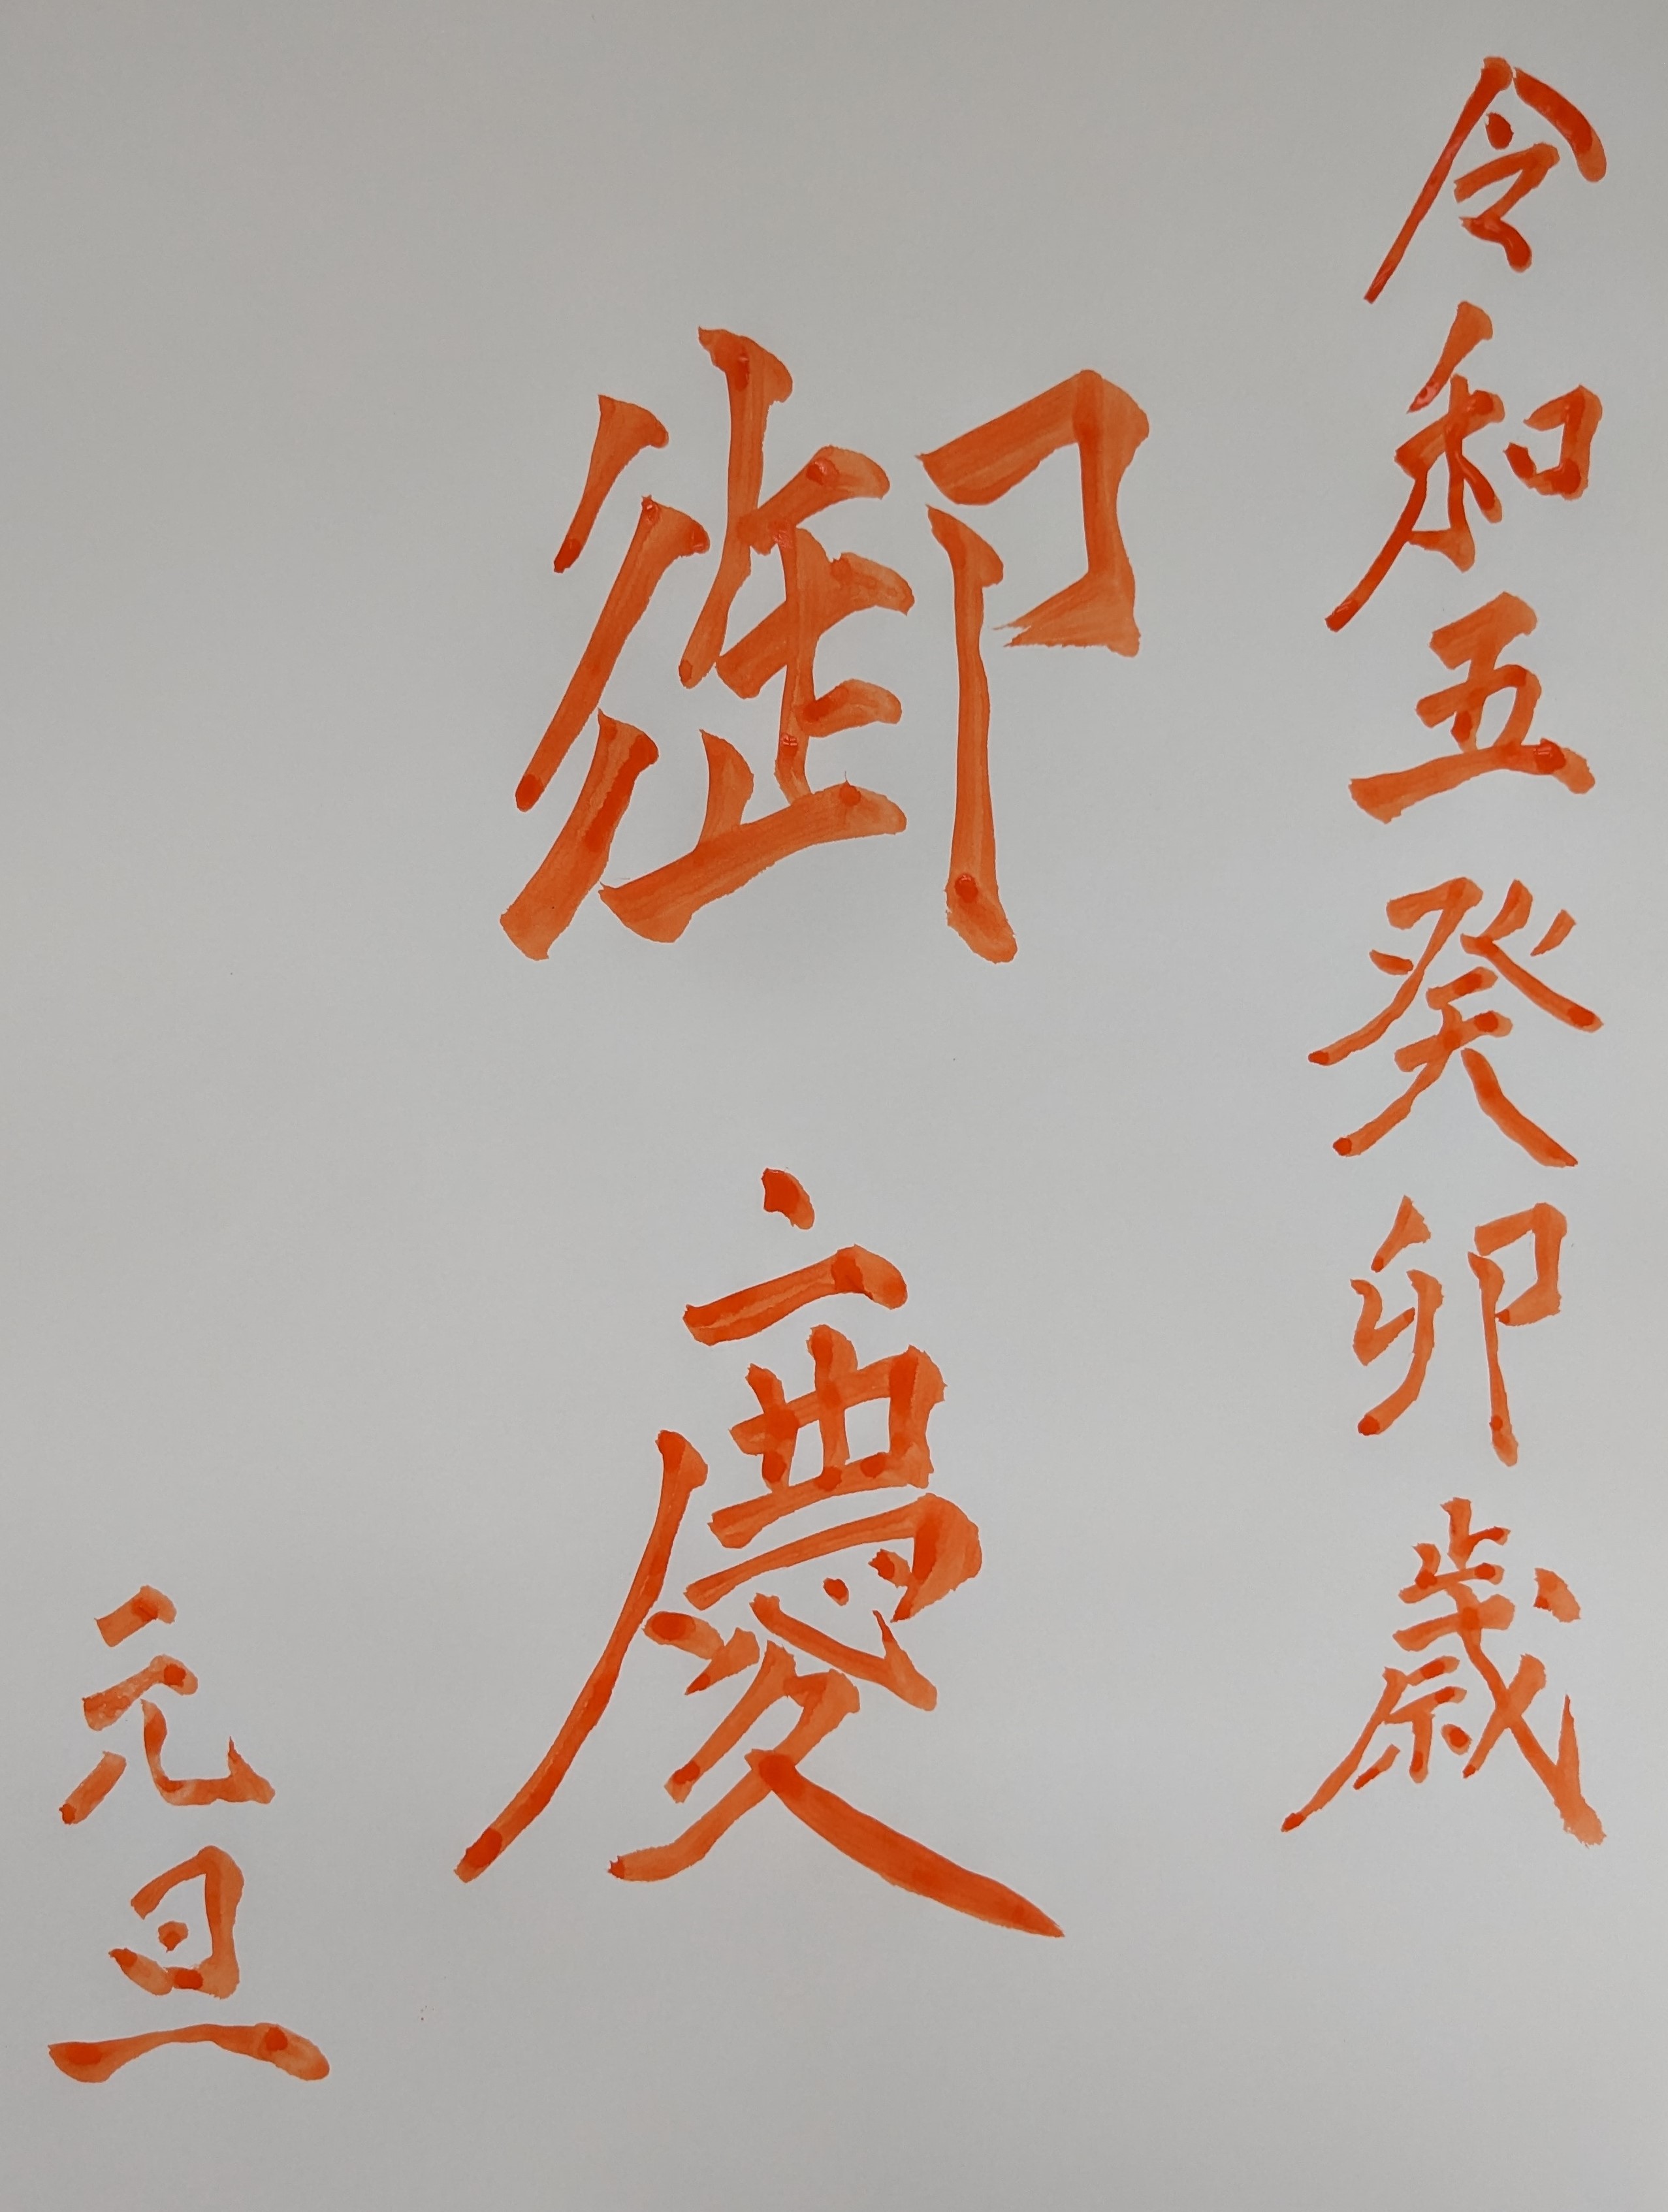 令和五癸卯歳
御慶
元旦